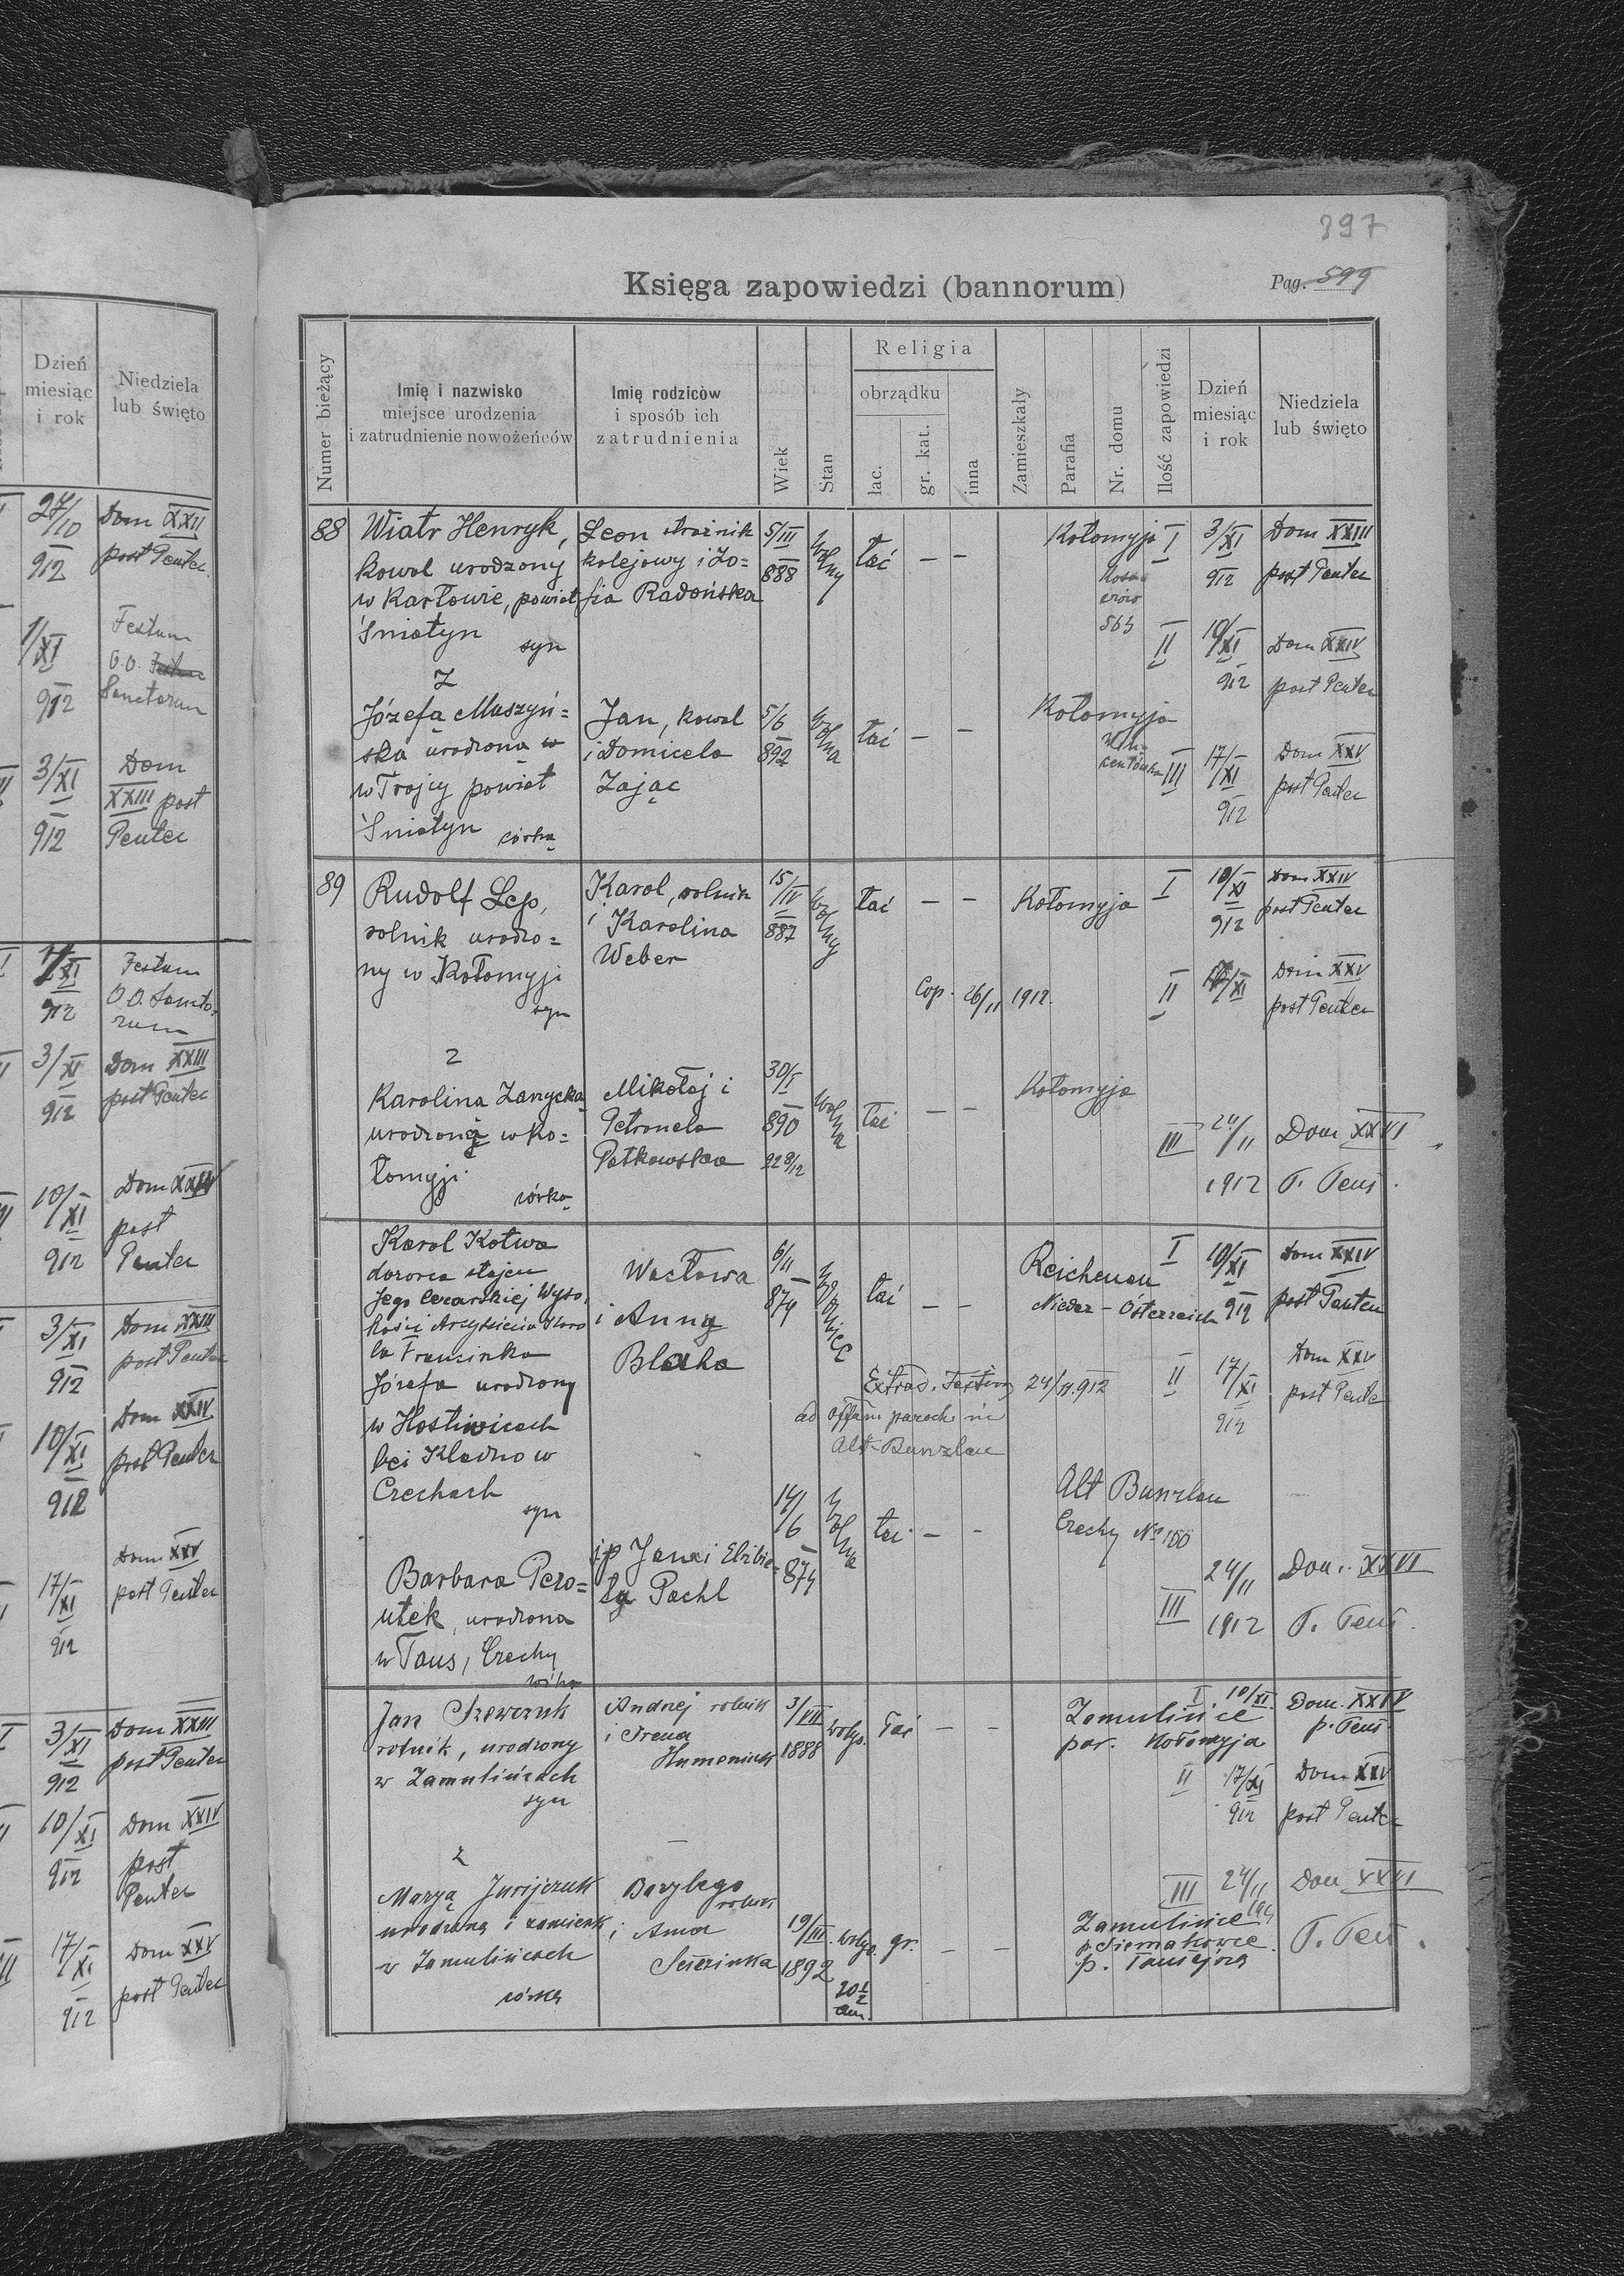 397
Księga zapowiedzi (bannorum)
Pag. 599
Numer bieżący
Imię i nazwisko
miejsce urodzenia
i zatrudnienie nowożeńców
Imię rodziców
i sposób ich
zatrudnienia
Wiek
Stan
Religia
obrządku
łac.
gr. kat.
inna
Zamieszkały
Parafia
Nr. domu
Ilość zapowiedzi
Dzień
miesiąc
i rok
Niedziela
lub święto
88
Wiatr Henryk,
kowal urodzony
w Karłowie, powiat
Śniatyn
syn
Leon strażnik
kolejowy i Zo=
fia Radońska
5/III
888
wolny
łać
— —
Kołomyja
563
I
3/XI
912
Dom XXIII
post Penter
II
10/XI
912
Dom XXIV
post Penter
Z
Józefa Muszyń=
ska urodzona w
w Trojcy powiat
Śniatyn córka
Jan, kowal
i Domicela
Zając
5/6
892
wolna
łać
— —
Kołomyja
III
17/XI
912
Dom XXV
post Penter
89
Rudolf Lep,
rolnik urodzo=
ny w Kołomyji
syn
Karol, rolnik
i Karolina
Weber
15/IV
887
wolny
łać
— —
Kołomyja
I
10/XI
912
Dom XXIV
post Penter
Cop. 26/11 1912.
II
17/XI
Dom XXV
post Penter
z
Karolina Zanycka
urodzona w Ko=
łomyji
córka
Mikołaj i
Petronela
Petkowska
30/I
890
22 9/12
wolna
łać
— —
Kołomyja
III
24/11
1912
Dom XXVI
P. Pent.
Karol Kotwa
dozorca stajen
Jego Cesarskiej Wyso
kości Arcyksięcia Karo
la Franciszka
Józefa urodzony
w Hostiwicach
bei Kladno w
Czechach
syn
Wacława
i Anny
Blaha
6/11
874
łać
— —
Reichenau
Nieder-Österreich
I
10/XI
912
Dom XXIV
post Penter
Extrad. Testim 24/11.912
ad offum paroch in
Alt-Bunzlau
II
17/XI
912
Dom XXV
post Pente
Barbara Pero=
utek, urodzona
w Taus, Czechy
córka
śp Jana i Elżbie=
ta Pachl
14/6
874
wolna
łać
— —
Alt Bunzlau
Czechy No 100
III
24/11
1912
Dom. XXVI
P. Pent.
Jan Szewczuk
rolnik, urodzony
w Zamulińcach
syn
Andrzej rolnik
i Irena
Humeniuk
3/VII
1888
wolny
łać
— —
Zamulińce
par. Kołomyja
I
10/XI.
Dom. XXIV
p. Pent
II
17/XI
912
Dom XXV
post Penter
z
Marya Jurijczuk
urodzona i zamieszk
w Zamulińcach
córka
Bazylego
rolnik
i Anna
19/III
1892
20 1/2
wolna
gr.
— —
Zamulińce
p. Siemakowce
III
24/11
Dom XXVI
P. Pent.
Dzień
miesiąc
i rok
Niedziela
lub święto
27/10
912
Dom XXII
post Penter
1/XI
912
Festum
O.O.
Sanctorum
3/XI
912
Dom
XXIII post
Penter
1/XI
912
Festum
O.O. Sancto=
rum
3/XI
912
Dom XXIII
post Penter
10/XI
912
Dom XXIV
post
Penter
3/XI
912
Dom XXIII
post Penter
10/XI
912
Dom XXIV
post Penter
17/XI
912
Dom XXV
post Penter
3/XI
912
Dom XXIII
post Penter
10/XI
912
Dom XXIV
post
Penter
17/XI
912
Dom XXV
post Penter